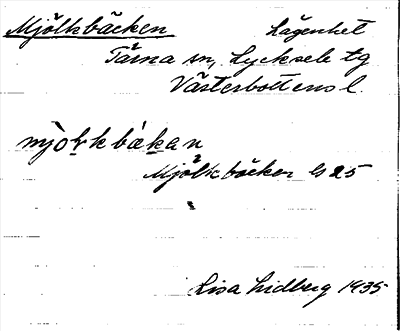 Mjölkbäcken Lägenhet
Tärna sn, Lycksele tg
Västerbottens l.
mjo̤rkbäkan
Mjölkbäcken G 25
Lisa Lidberg 1935